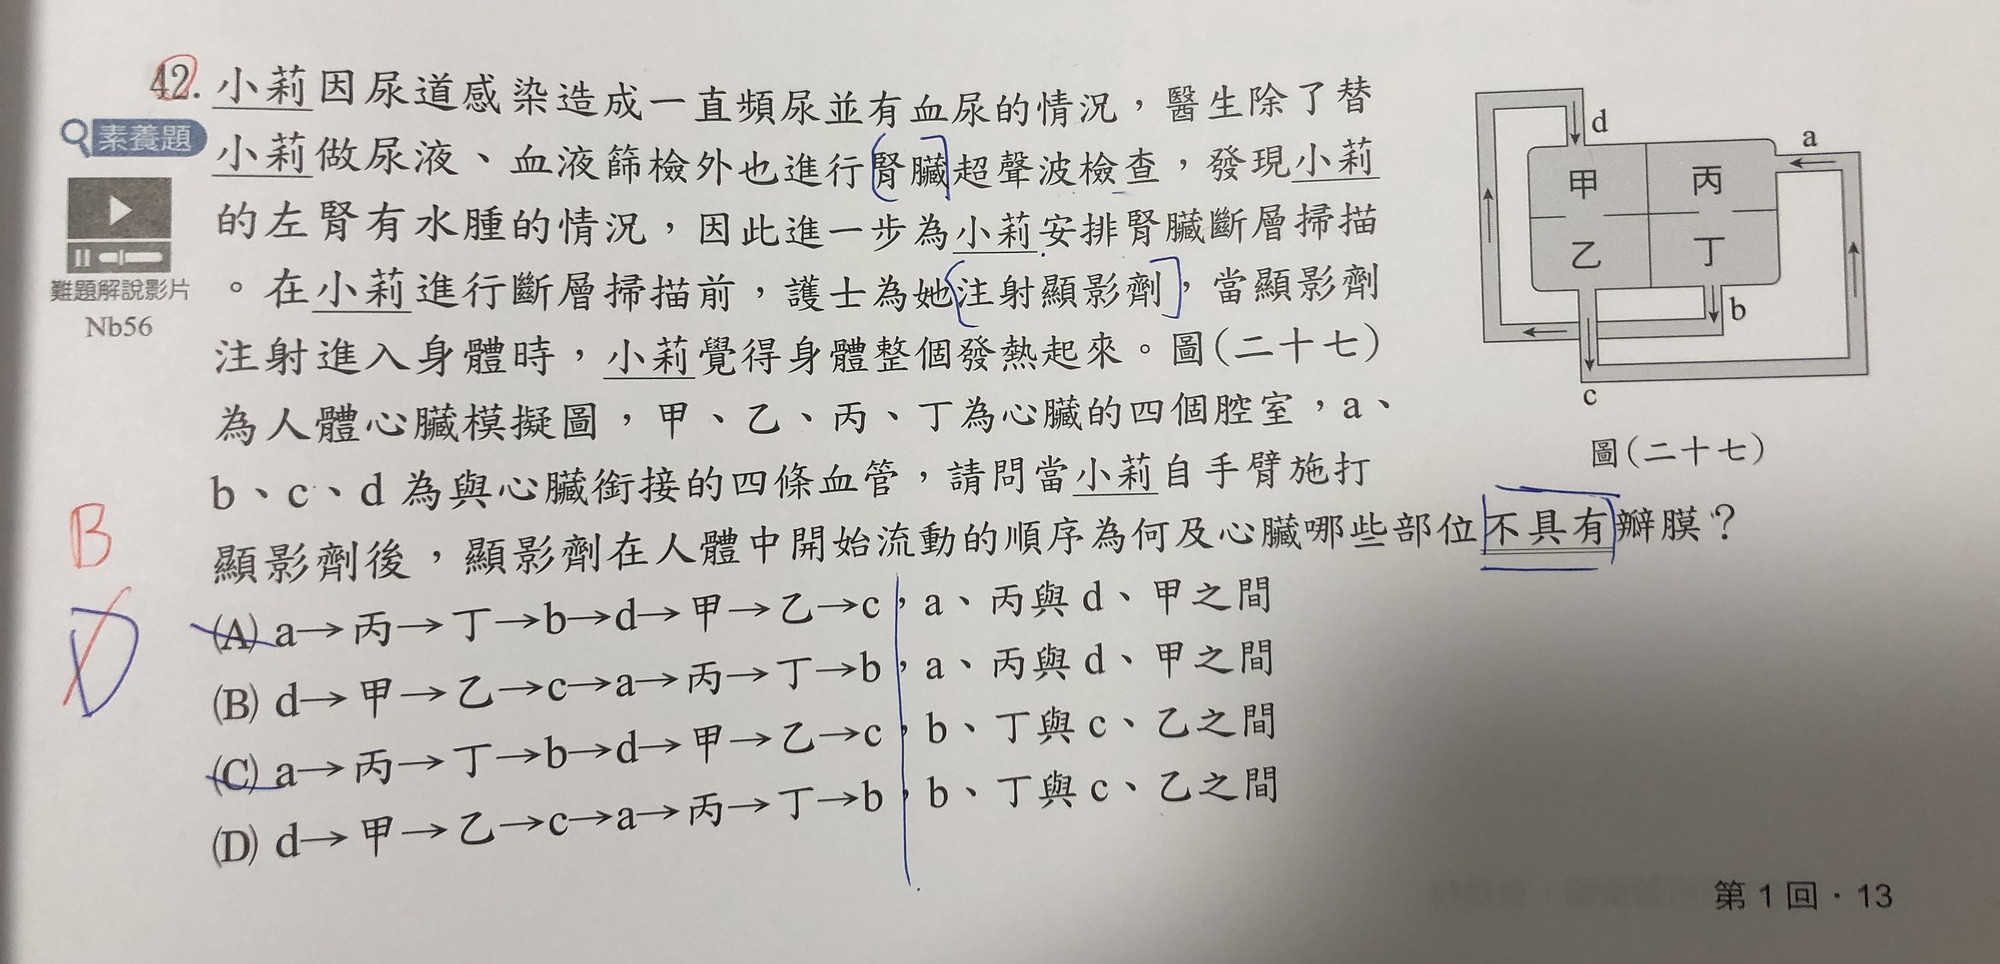 42. 小莉因尿道感染造成一直頻尿並有血尿的情況，醫生除了替
素養題
小莉做尿液、血液篩檢外也進行腎臟超聲波檢查，發現小莉
的左腎有水腫的情況，因此進一步為小莉安排腎臟斷層掃描
。在小莉進行斷層掃描前，護士為她注射顯影劑，當顯影劑
難題解說影片
Nb56
注射進入身體時，小莉覺得身體整個發熱起來。圖(二十七)
為人體心臟模擬圖，甲、乙、丙、丁為心臟的四個腔室，a、
b、c、d 為與心臟銜接的四條血管，請問當小莉自手臂施打
顯影劑後，顯影劑在人體中開始流動的順序為何及心臟哪些部位不具有瓣膜？
(A) a→丙→丁→b→d→甲→乙→c，a、丙與d、甲之間
(B) d→甲→乙→c→a→丙→丁→b，a、丙與d、甲之間
(C) a→丙→丁→b→d→甲→乙→c，b、丁與c、乙之間
(D) d→甲→乙→c→a→丙→丁→b，b、丁與c、乙之間
B
D
d
a
甲
丙
乙
丁
b
c
圖(二十七)
第1回·13